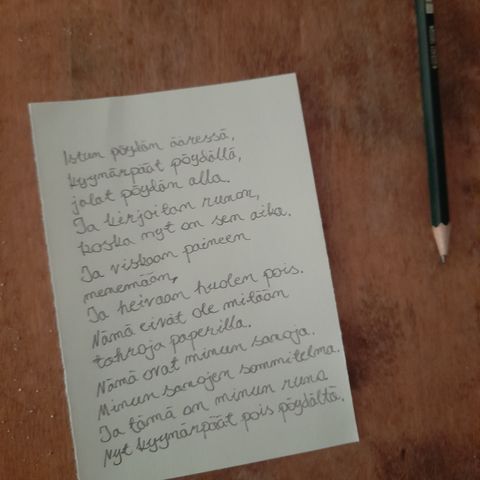 Istun pöydän ääressä,
kyynärpäät pöydällä,
jalat pöydän alla.
Ja kirjoitan runon,
koska nyt on sen aika.
Ja viskaan paineen
menemään,
Ja heivaan huolen pois.
Nämä eivät ole mitään
tahroja paperilla.
Nämä ovat minun sanoja.
Minun sanojen sommitelma.
Ja tämä on minun runo
Nyt kyynärpäät pois pöydältä.